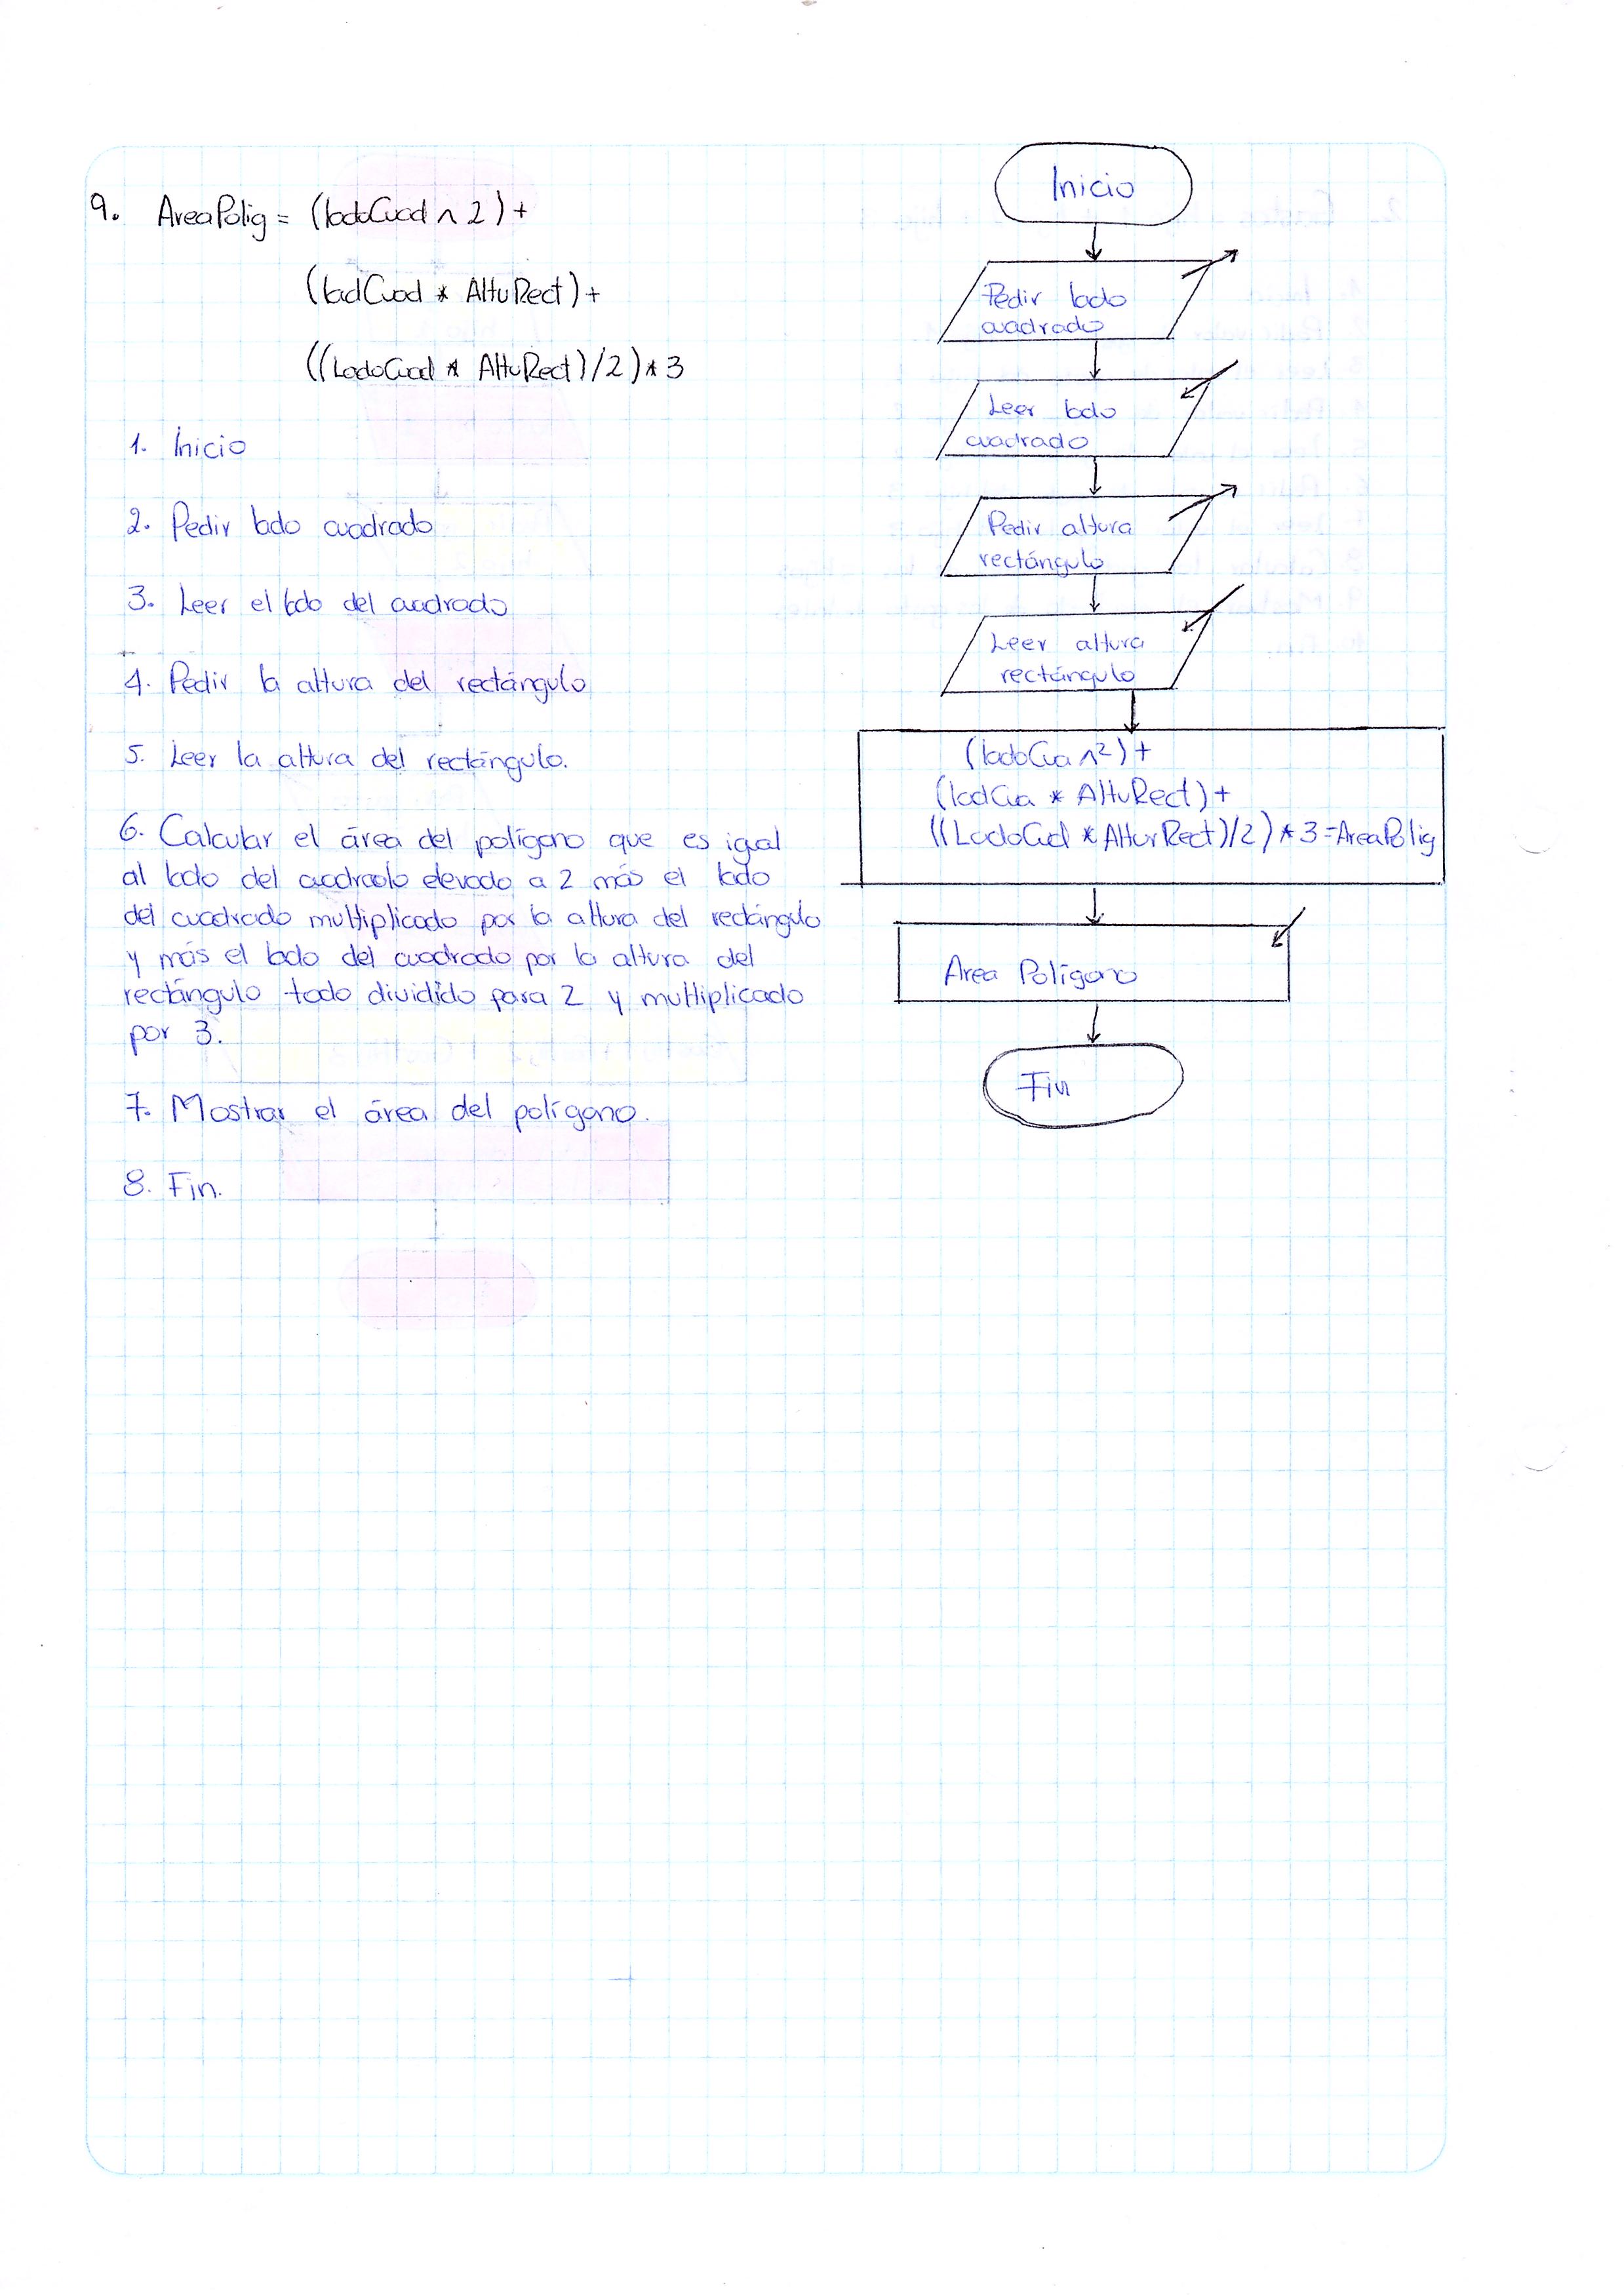 9. AreaPolig = (ladoCuad ^ 2) +
(ladCuad * AltuRect) +
((LadoCuad * AltuRect)/2)*3
1. Inicio
2. Pedir lado cuadrado
3. Leer el lado del cuadrado
4. Pedir la altura del rectángulo
5. Leer la altura del rectángulo.
6. Calcular el área del polígono que es igual
al lado del cuadrado elevado a 2 más el lado
del cuadrado multiplicado por la altura del rectángulo
y más el lado del cuadrado por la altura del
rectángulo todo dividido para 2 y multiplicado
por 3.
7. Mostrar el área del polígono.
8. Fin.
Inicio
Pedir lado
cuadrado
Leer lado
cuadrado
Pedir altura
rectángulo
Leer altura
rectángulo
(ladoCua ^2) +
(ladCua * AltuRect) +
((LadoCud * AlturRect)/2) * 3 = AreaPolig
Area Polígono
Fin